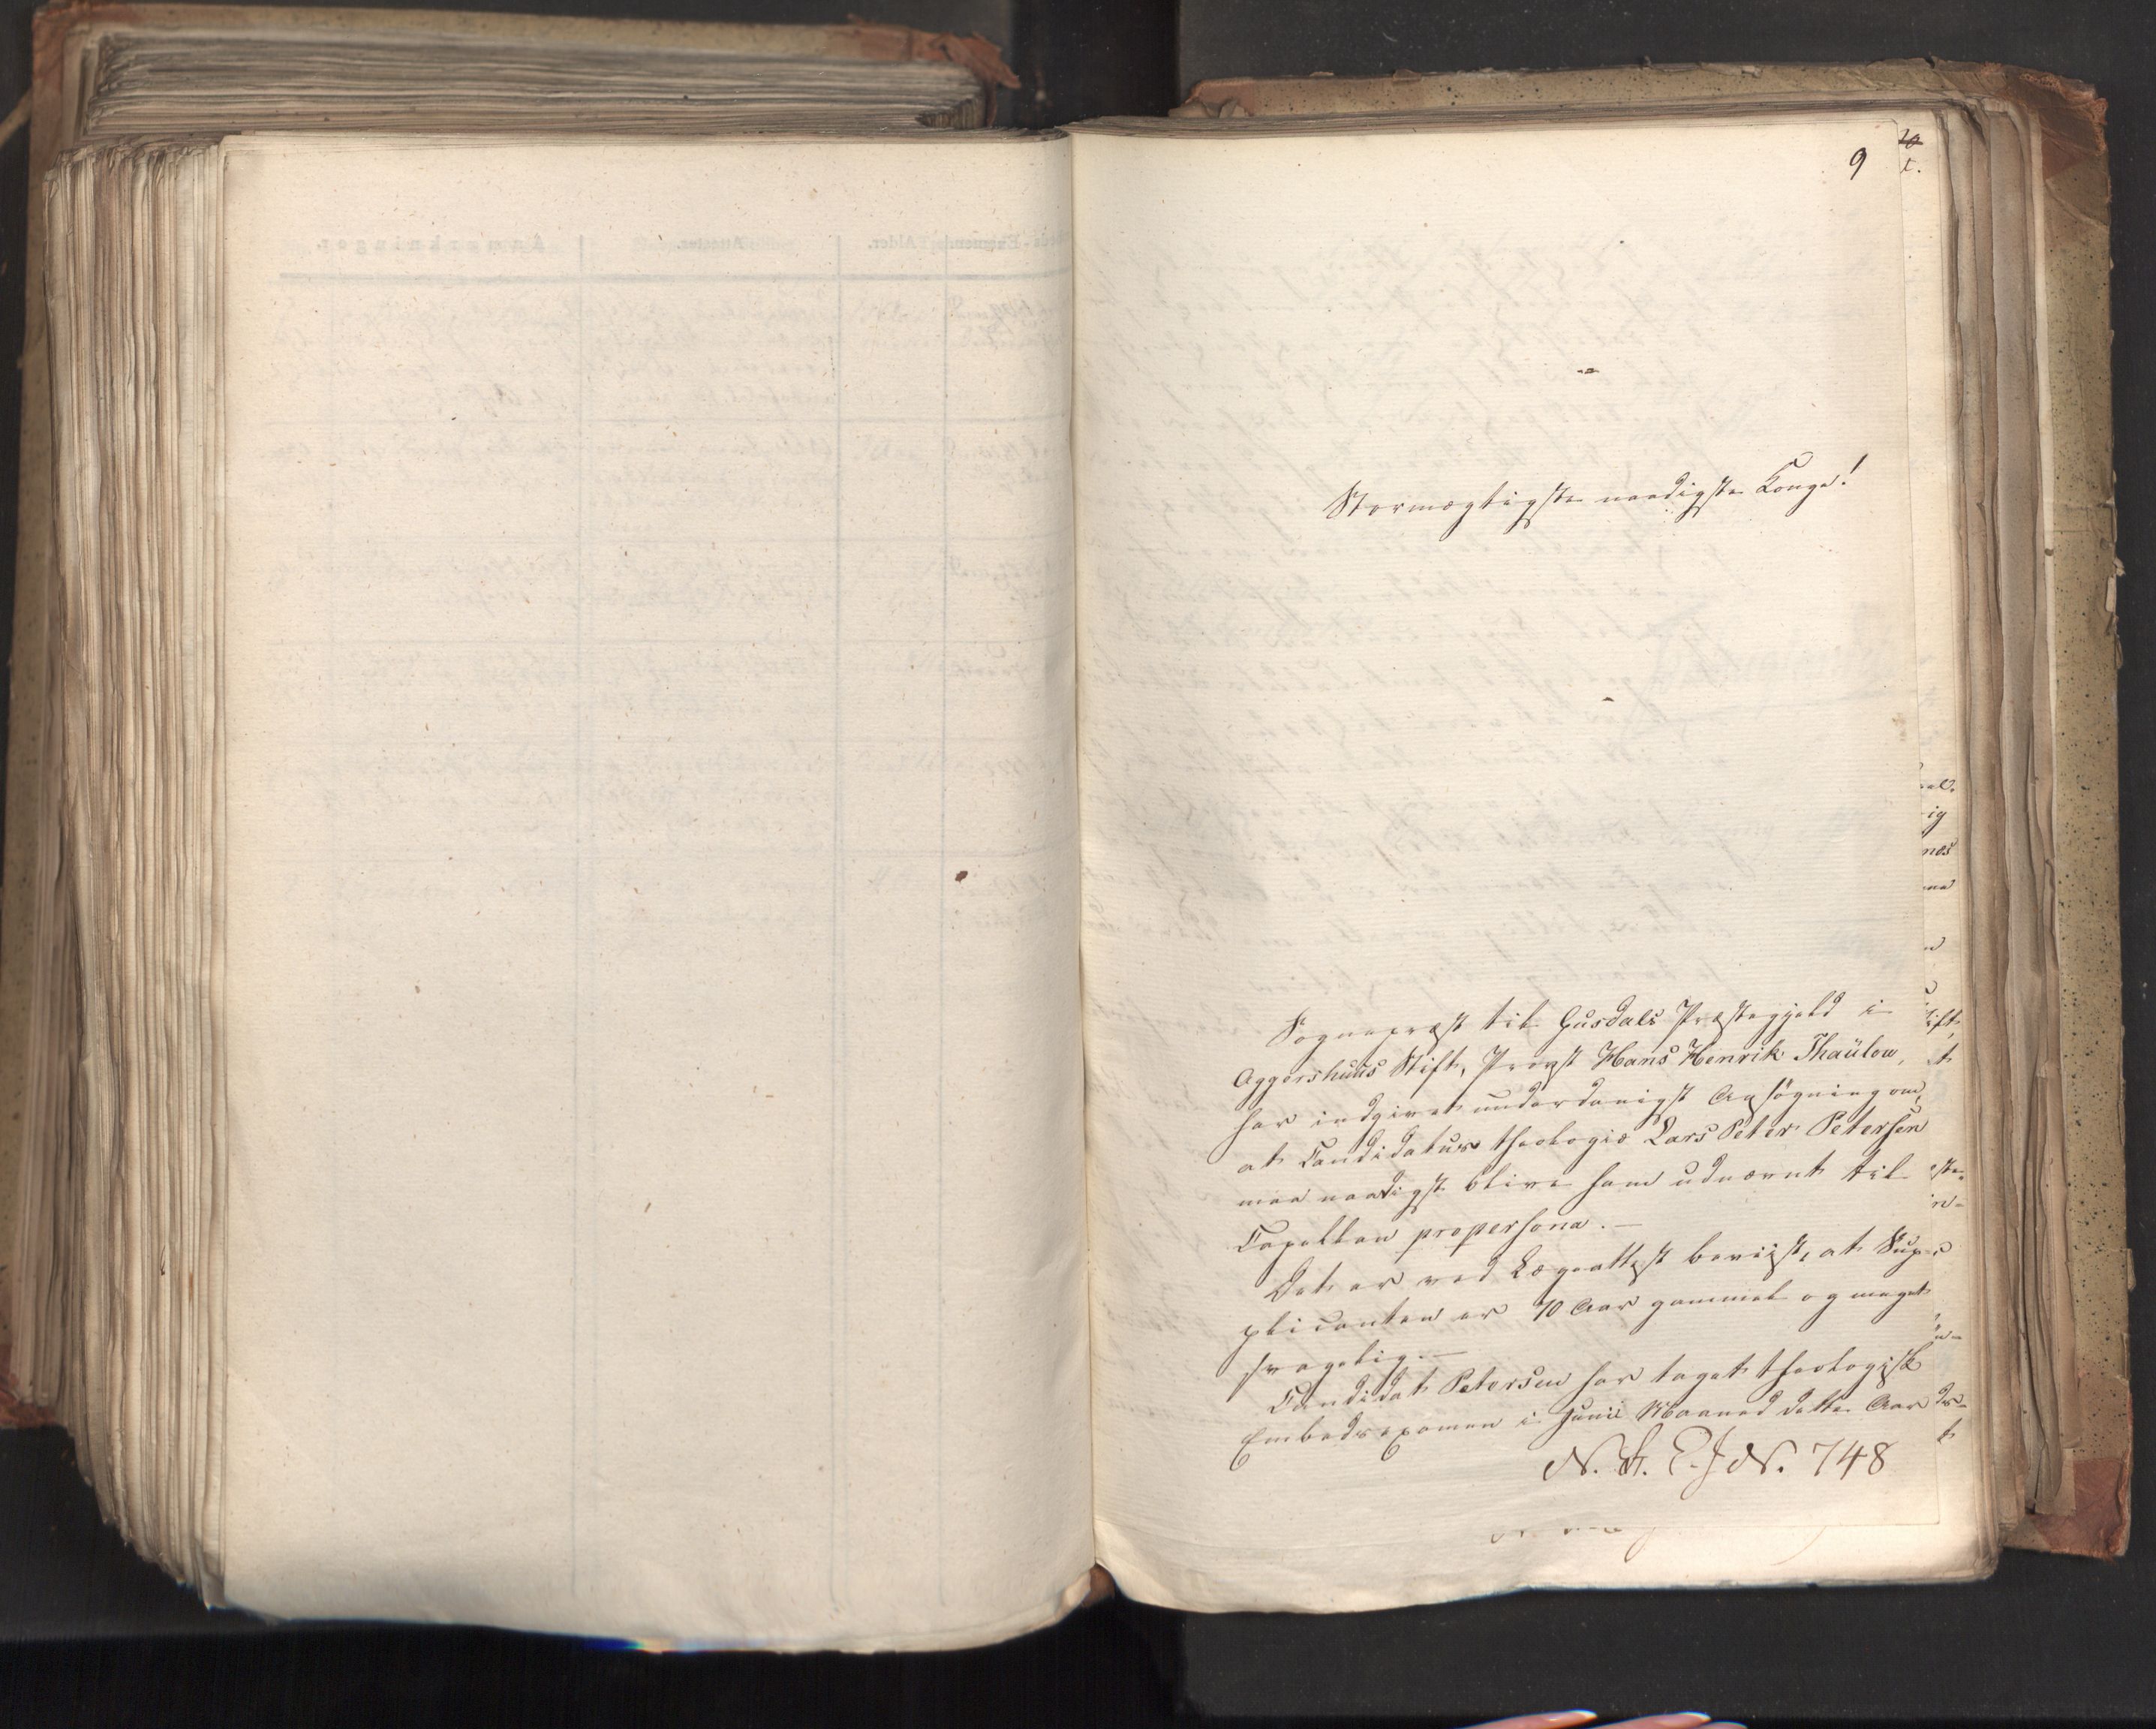 9
Stormægtigste naadigste Konge!
Sognepræst til Gusdals Præstegjeld i
Aggershuus Stift, Provst Hans Henrik Thaülow,
har indgivet underdanigst Ansögning om,
at Candidatus theologiæ Lars Peter Petersen
maa naadigst blive ham udnævnt til
Capellan propersona.—
Det er ved Lægeattest beviist, at Sup-
plicanten er 70 Aar gammel og meget
svagelig.—
Candidat Petersen har taget theologisk
Embedsexamen i Junii Maaned dette Aar
N. A. E. J N. 748